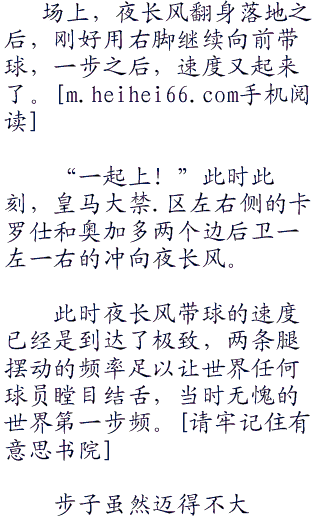 场上，夜长风翻身落地之
后，刚好用右脚继续向前带
球，一步之后，速度又起来
了。[m.heihei66.com手机阅
读]
“一起上！”此时此
刻，皇马大禁.区左右侧的卡
罗仕和奥加多两个边后卫一
左一右的冲向夜长风。
此时夜长风带球的速度
已经是到达了极致，两条腿
摆动的频率足以让世界任何
球员瞠目结舌，当时无愧的
世界第一步频。[请牢记住有
意思书院]
步子虽然迈得不大